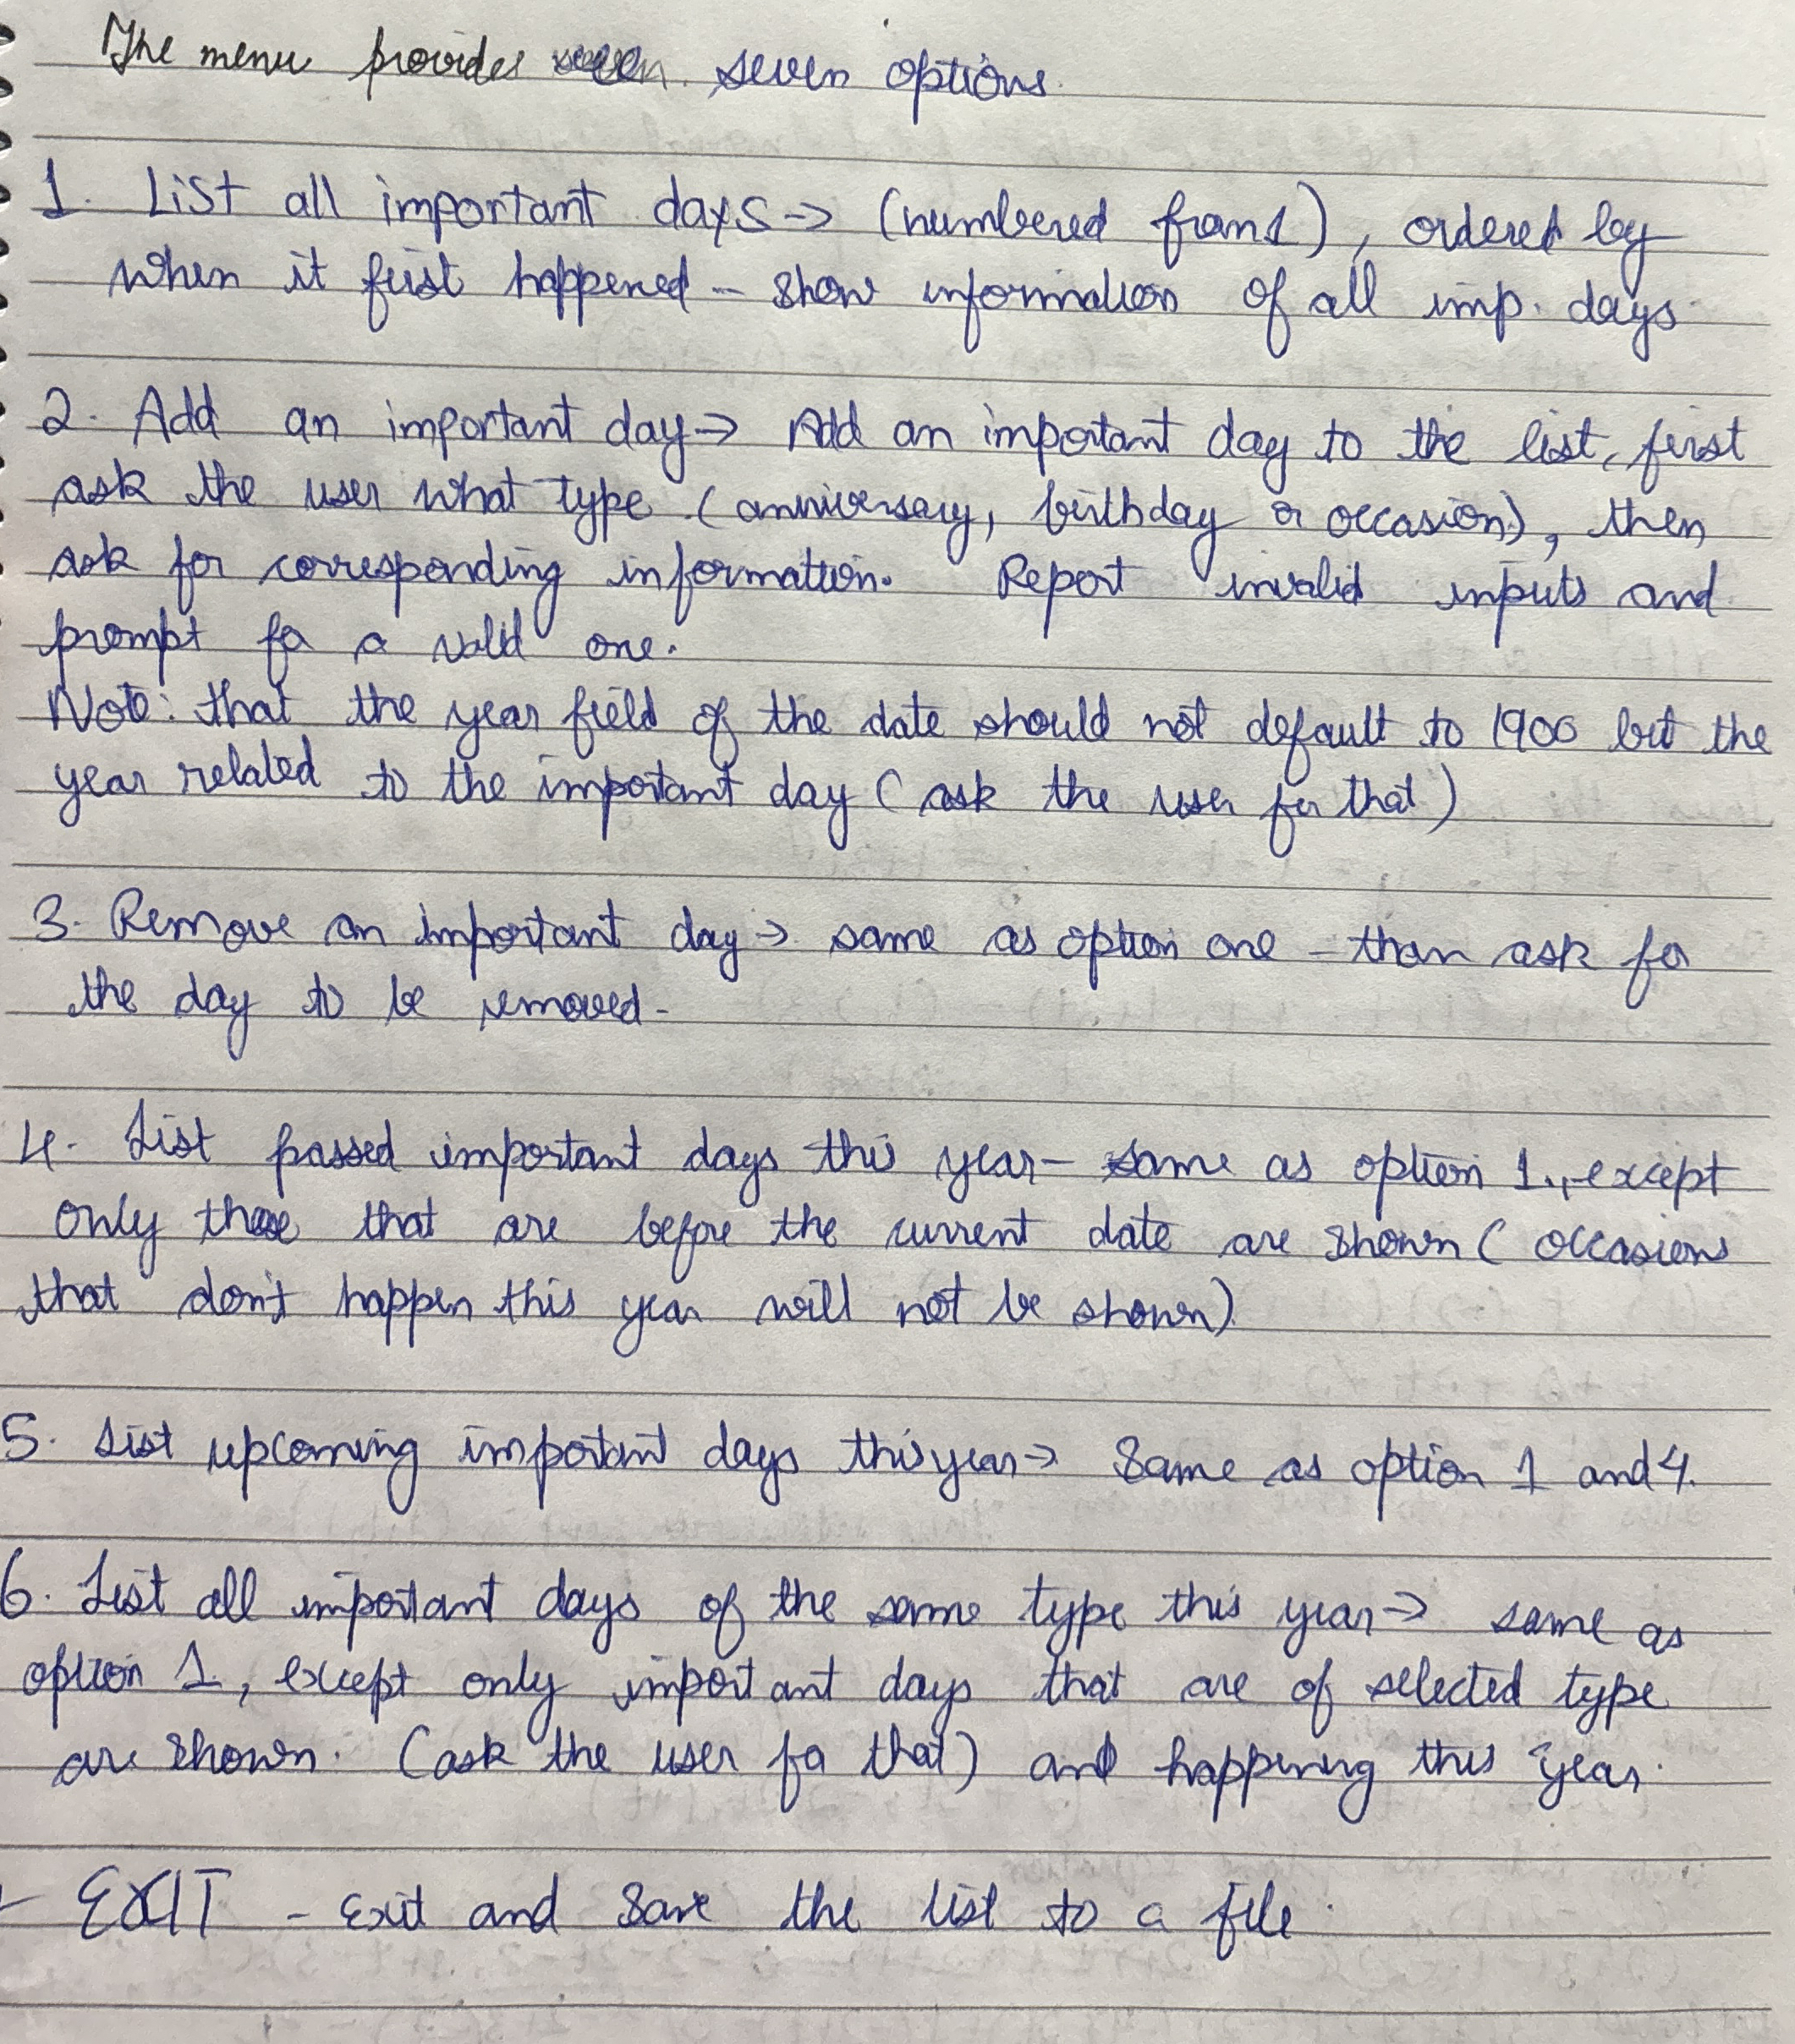 The menu provides seven options.
1. List all important days → (numbered from 1), ordered by
when it first happened - show information of all imp. days.
2. Add an important day → Add an important day to the list, first
ask the user what type (anniversary, birthday or occasion), then
ask for corresponding information. Report invalid inputs and
prompt for a valid one.
Note: that the year field of the date should not default to 1900 but the
year related to the important day (ask the user for that)
3. Remove an important day → same as option one - than ask for
the day to be removed -
4. List passed important days this year - same as option 1., except
only those that are before the current date are shown (occasions
that don't happen this year will not be shown)
5. List upcoming important days this year → Same as option 1 and 4.
6. List all important days of the same type this year → same as
option 1, except only important days that are of selected type
are shown. (ask the user for that) and happening this year.
- EXIT - Exit and save the list to a file.